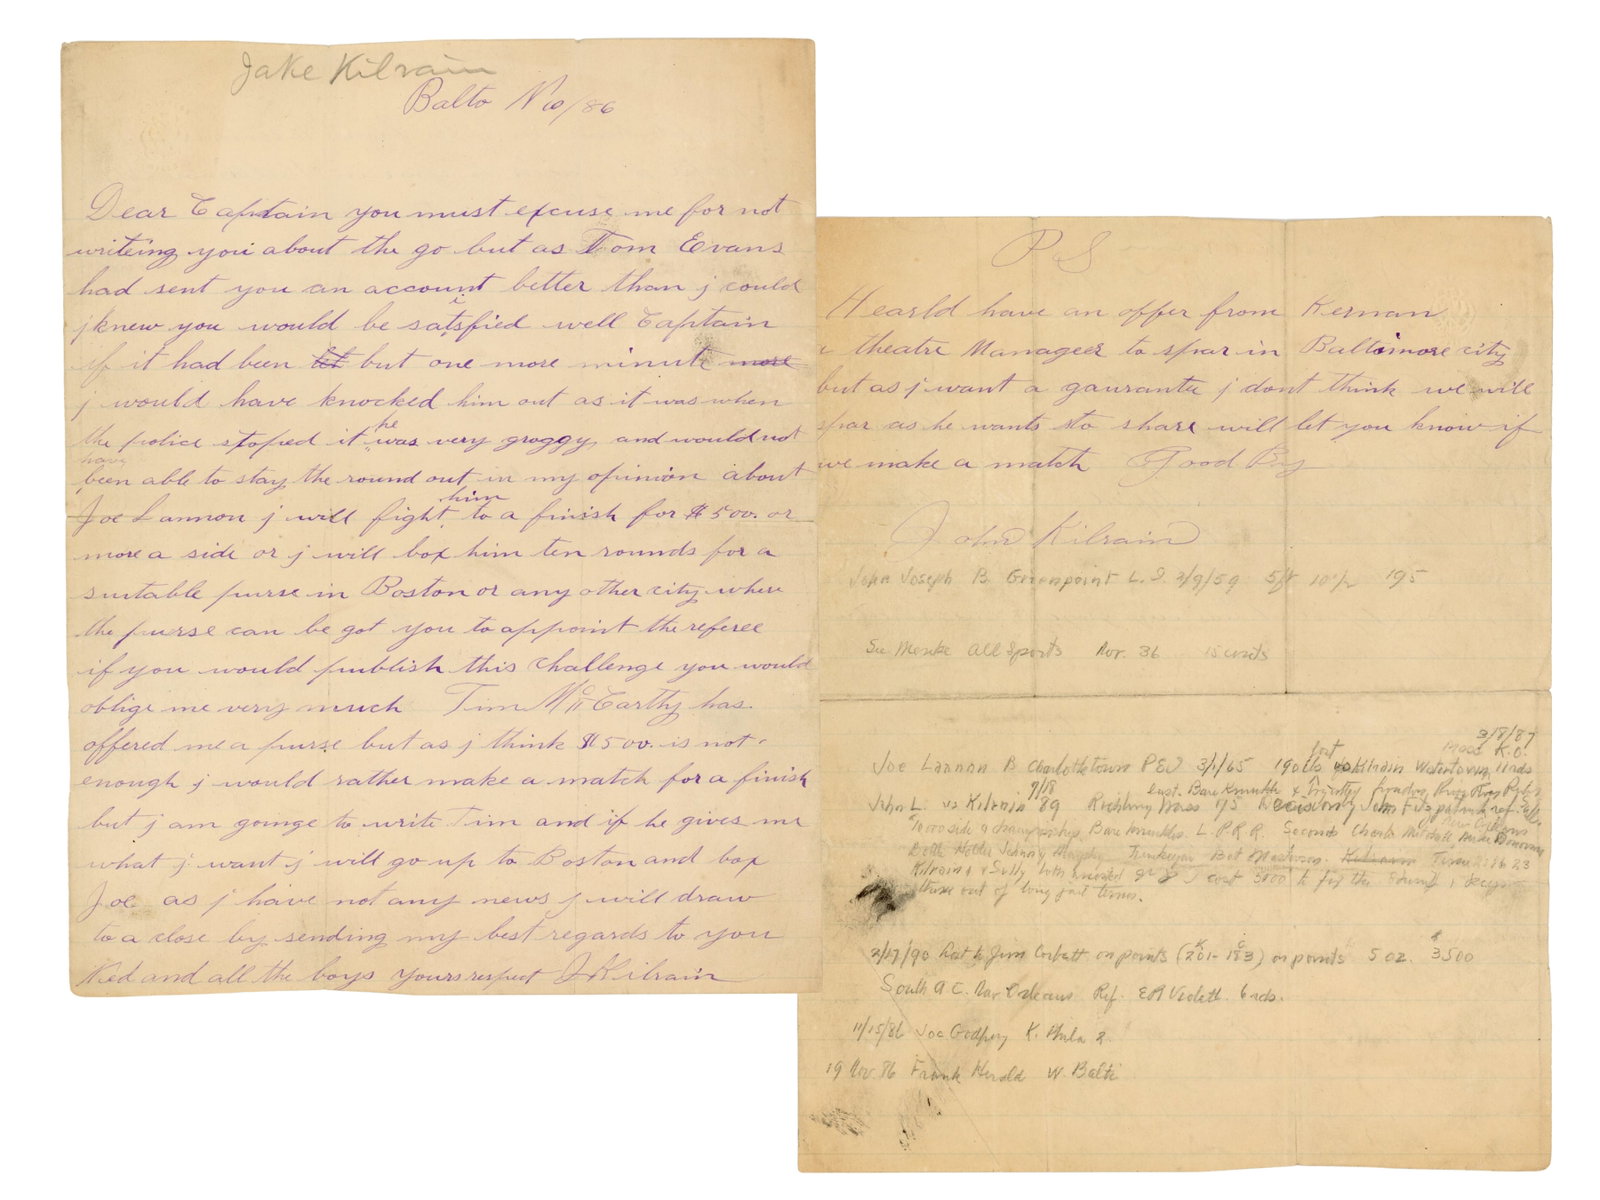 Jake Kilrain
Balto N 10/86
Dear Captain you must excuse me for not
writeing you about the go but as Tom Evans
had sent you an account better than j could
j knew you would be satisfied well Captain
if it had been but one more minute more
j would have knocked him out as it was when
the police stoped it he was very groggy and would not
have been able to stay the round out in my opinion about
Joe Lannon j will fight him to a finish for $500. or
more a side or j will box him ten rounds for a
suitable purse in Boston or any other city where
the purse can be got you to appoint the referee
if you would publish this challenge you would
oblige me very much Tim McCarthy has
offered me a purse but as j think $500. is not
enough j would rather make a match for a finish
but j am goinge to write Tim and if he gives me
what j want j will go up to Boston and box
Joe as j have not any news j will draw
to a close by sending my best regards to you
Ned and all the boys yours respect J Kilrain
PS
Hearld have an offer from Kernan
a theatre Manageer to spar in Baltimore city
but as j want a gaurante j dont think we will
spar as he wants to share will let you know if
we make a match Good By
John Kilrain
John Joseph B. Greenpoint L.I. 2/9/59 5ft 10½ 195
See Menke All Sports Nov. 36 15 cents
3/8/87
Joe Lannon B Charlottetown PEI 3/1/65 190 lbs Kilrain Watertown, Mass K.O. 11 rds
7/18
John L. vs Kilrain 89 Richburg Miss 75
10000 side & championship Bare Knuckles. L.P.R.R. Seconds Charlie Mitchell, Mike Donovan
Bat Masterson. Kilrain Time 2:16 23
Kilrain & Sully both arrested
these out of long jail terms.
2/17/90 Lost to Jim Corbett on points (201-183) on points 5 oz. $3500
South A C. New Orleans Ref. 6 rds.
11/15/86 Joe Godfrey K. Phila 2
19 Nov. 86 Frank Herald W. Balti